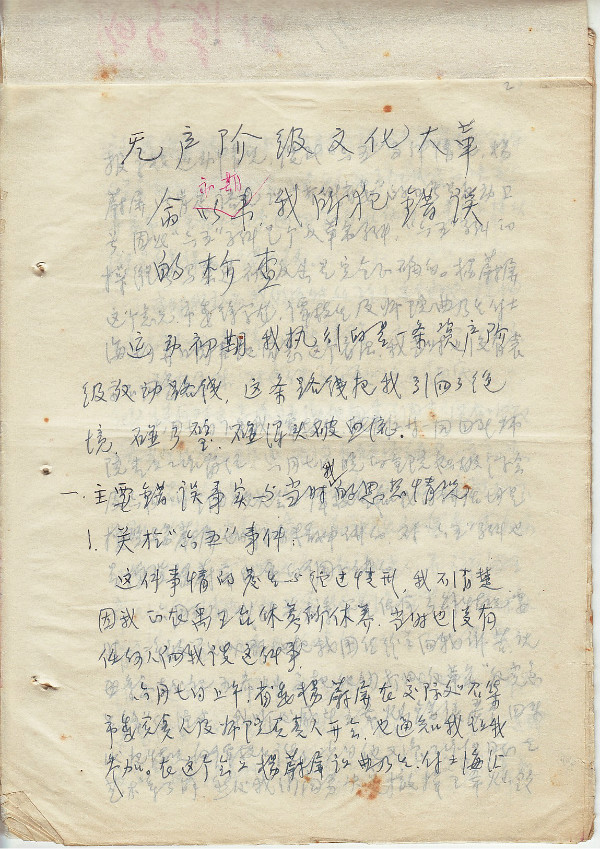 2
无产阶级文化大革
命以来我所犯错误
初期
的检查
运动初期我执行的是一条资产阶
级反动路线，这条路线把我引向了绝
境，碰了壁，碰得头破血流。
一、主要错误事实与当时我的思想情况
1.关于“六五”事件：
这件事情的发生与经过情形，我不清楚
因我仍在 休养所休养，当时也没有
任何人向我谈这件事。
六月七日上午，省委杨蔚屏在交际处召集
市委负责人及师院负责人开会，也通知我
参加。在这个会上杨蔚屏说